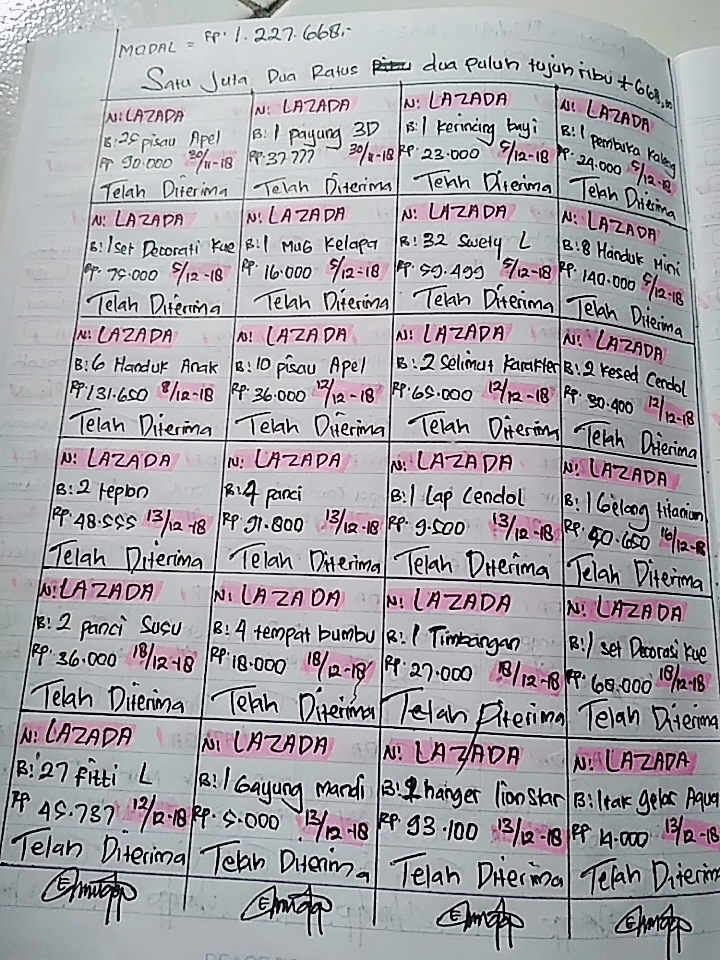 MODAL = Rp. 1.227.668.-
Satu Juta Dua Ratus dua puluh tujuh ribu + 668,00
N: LAZADA
B: 25 pisau Apel
Rp 90.000 30/11-18
Telah Diterima
N: LAZADA
B: 1 payung 3D
Rp. 37.777 30/11-18
Telah Diterima
N: LAZADA
B: 1 kerincing bayi
Rp. 23.000 5/12-18
Telah Diterima
N: LAZADA
B: 1 pembuka kaleng
Rp. 24.000 5/12-18
Telah Diterima
N: LAZADA
B: 1 set Decorati Kue
Rp. 75.000 5/12-18
Telah Diterima
N: LAZADA
B: 1 MUG Kelapa
Rp. 16.000 5/12-18
Telah Diterima
N: LAZADA
B: 32 Swety L
Rp. 59.499 5/12-18
Telah Diterima
N: LAZADA
B: 8 Handuk Mini
Rp. 140.000 5/12-18
Telah Diterima
N: LAZADA
B: 6 Handuk Anak
Rp. 131.650 8/12-18
Telah Diterima
N: LAZADA
B: 10 pisau Apel
Rp. 36.000 12/12-18
Telah Diterima
N: LAZADA
B: 2 Selimut Karakter
Rp. 65.000 12/12-18
Telah Diterima
N: LAZADA
B: 2 Kesed Cendol
Rp. 30.400 12/12-18
Telah Diterima
N: LAZADA
B: 2 teplon
Rp. 48.555 13/12-18
Telah Diterima
N: LAZADA
B: 4 panci
Rp. 91.800 13/12-18
Telah Diterima
N: LAZADA
B: 1 Lap Cendol
Rp. 9.500 13/12-18
Telah Diterima
N: LAZADA
B: 1 Gelang titanium
Rp. 40.650 16/12-18
Telah Diterima
N: LAZADA
B: 2 panci Susu
Rp. 36.000 18/12-18
Telah Diterima
N: LAZADA
B: 4 tempat bumbu
Rp. 18.000 18/12-18
Telah Diterima
N: LAZADA
B: 1 Timbangan
Rp. 27.000 18/12-18
Telah Diterima
N: LAZADA
B: 1 set Decorasi Kue
Rp. 68.000 18/12-18
Telah Diterima
N: LAZADA
B: 27 fitti L
Rp 45.737 12/12-18
Telah Diterima
N: LAZADA
B: 1 Gayung mandi
Rp. 5.000 13/12-18
Telah Diterima
N: LAZADA
B: 2 hanger lionstar
Rp. 93.100 13/12-18
Telah Diterima
N: LAZADA
B: 1 rak gelas Aqua
Rp 14.000 13/12-18
Telah Diterima